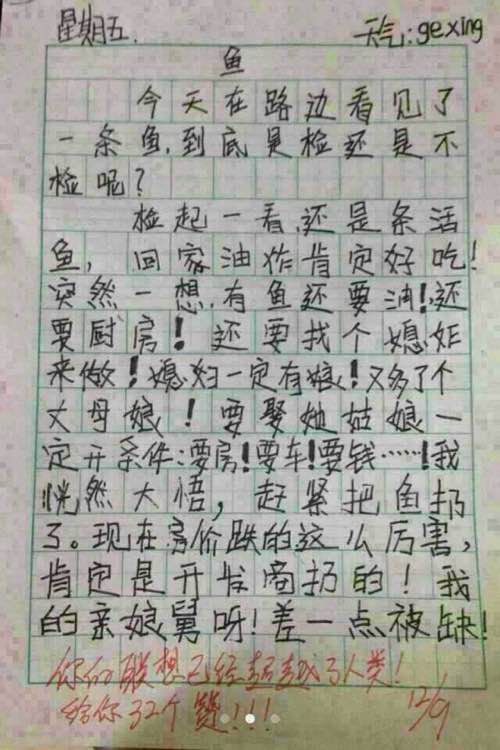 星期五. 天气:gexing
鱼
今天在路边看见了
一条鱼,到底是检还是不
检呢?
检起一看,还是条活
鱼,回家油炸肯定好吃!
突然一想,有鱼还要油!还
要厨房!还要找个媳妇
来做!媳妇一定有娘!又多了个
丈母娘!要娶她姑娘一
定开条件:要房!要车!要钱……!我
恍然大悟,赶紧把鱼扔
了。现在房价跌的这么厉害,
肯定是开发商扔的!我
的亲娘舅呀!差一点被缺!
你的联想已经超越了人类!
给你32个赞!!! 12/9